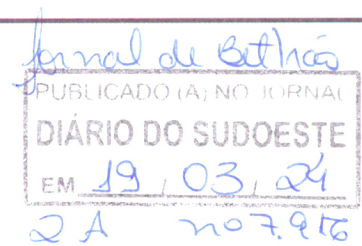 Jornal de Beltrão
PUBLICADO (A) NO JORNAL
DIÁRIO DO SUDOESTE
EM 19 / 03 / 24
2 A nº 7.916